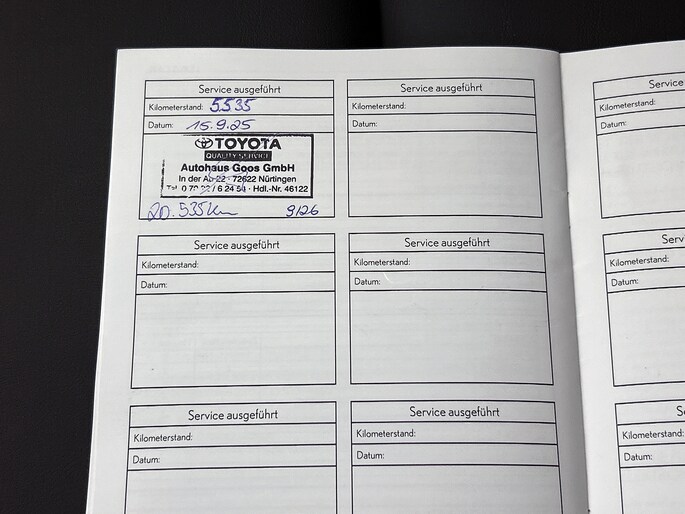 Service ausgeführt
Kilometerstand: 5.535
Datum: 15.9.25
TOYOTA
QUALITY SERVICE
Autohaus Goos GmbH
In der Au 22 · 72622 Nürtingen
6 24 50 · Hdl.-Nr. 46122
20.535 Km 9/26
Service ausgeführt
Kilometerstand:
Datum:
Service
Kilometerstand:
Datum:
Service ausgeführt
Kilometerstand:
Datum:
Service ausgeführt
Kilometerstand:
Datum:
Kilometerstand:
Datum:
Service ausgeführt
Kilometerstand:
Datum:
Service ausgeführt
Kilometerstand:
Datum:
Kilometerstand:
Datum: